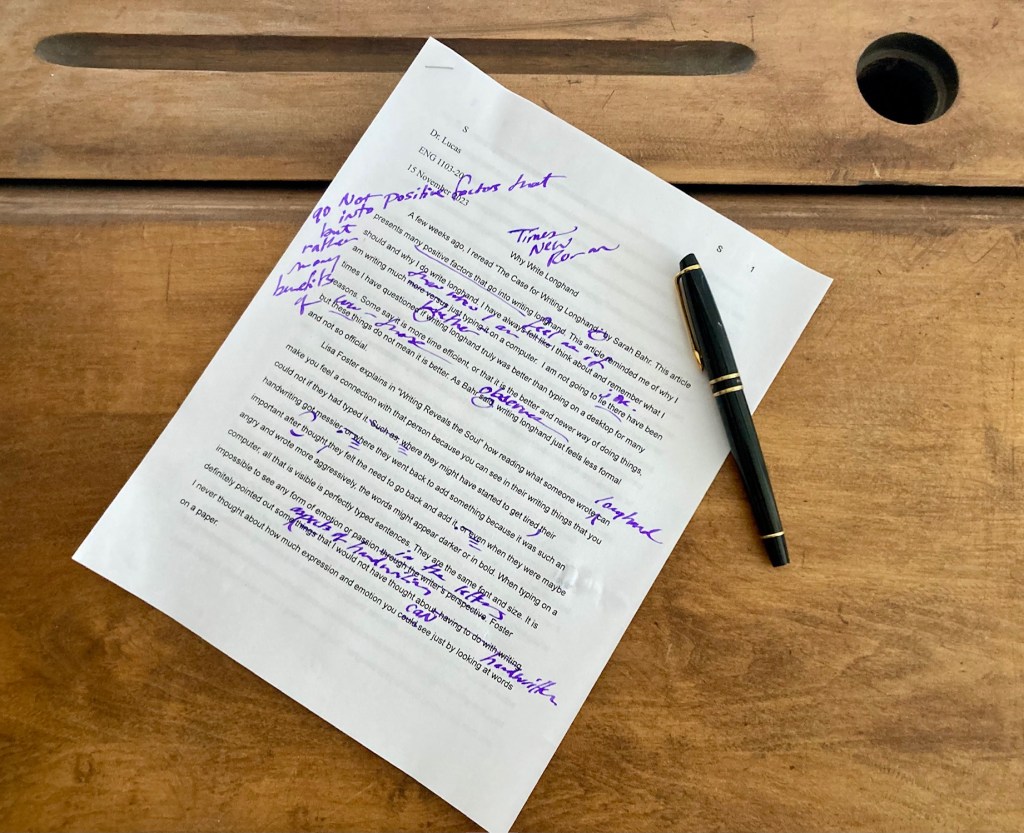 S 1
S
Dr. Lucas
ENG 1103-20
15 November 2023
go Not positive factors that
into
but
rather
many
benefits
of
Times
New
Roman
Why Write Longhand
A few weeks ago, I reread "The Case for Writing Longhand" by Sarah Bahr. This article
presents many positive factors that go into writing longhand. This article reminded me of why I
should and why I do write longhand. I have always felt like I think about and remember what I
am writing much more versus just typing it on a computer. I am not going to lie there have been
times I have questioned if writing longhand truly was better than typing on a desktop for many
reasons. Some say it is more time efficient, or that it is the better and newer way of doing things,
but these things do not mean it is better. As Bahr said writing longhand just feels less formal
observes
and not so official.
Lisa Foster explains in "Writing Reveals the Soul" how reading what someone wrote can
longhand
make you feel a connection with that person because you can see in their writing things that you
could not if they had typed it. Such as, where they might have started to get tired their
handwriting got messier or where they went back to add something because it was such an
important after thought they felt the need to go back and add it or even when they were maybe
angry and wrote more aggressively, the words might appear darker or in bold. When typing on a
computer, all that is visible is perfectly typed sentences. They are the same font and size. It is
impossible to see any form of emotion or passion through the writer's perspective. Foster
in the letters
definitely pointed out some things that I would not have thought about having to do with writing.
aspects of handwriting
I never thought about how much expression and emotion you could see just by looking at words
can
handwritten
on a paper.